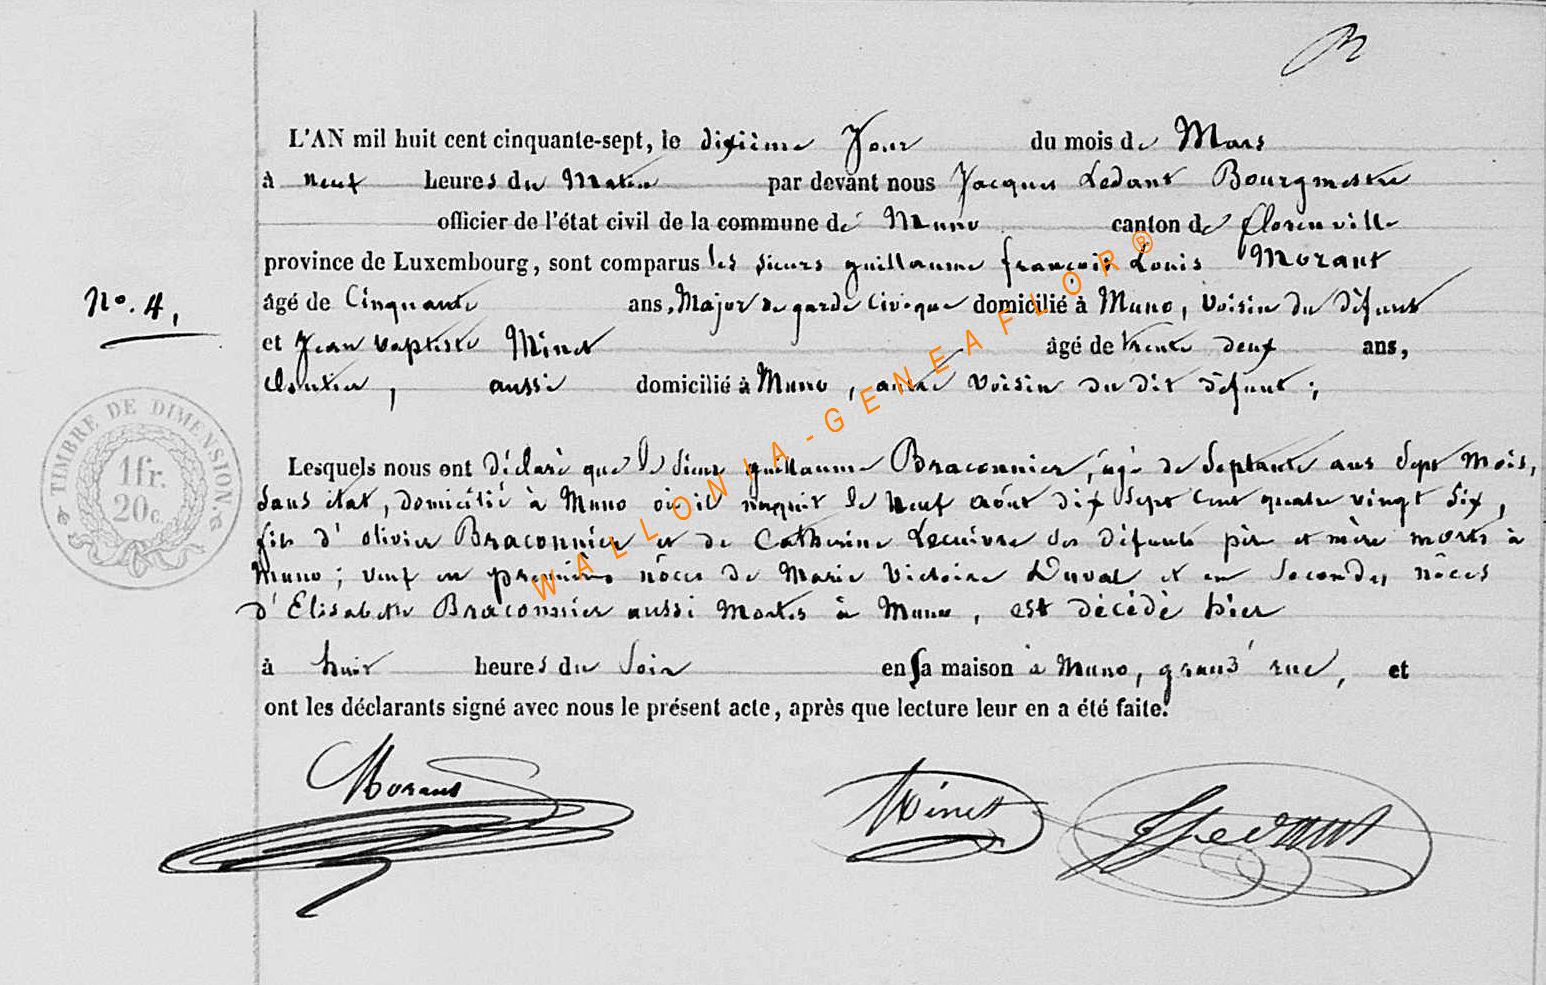 B
L'AN mil huit cent cinquante-sept, le dixième Jour du mois de Mars
à neuf heures du Matin par devant nous Jacques Ledant Bourgmestre
officier de l'état civil de la commune de Muno canton de florenville
province de Luxembourg, sont comparus les sieurs guillaume françois Louis Morant
No. 4.
âgé de Cinquante ans, Major de garde Civique domicilié à Muno, Voisin du défunt
et Jean baptiste Minet âgé de trente deux ans,
cloutier, aussi domicilié à Muno, autre Voisin du dit défunt;
TIMBRE DE DIMENSION.
1 fr.
20 c.
Lesquels nous ont déclaré que le Sieur guillaume Braconnier, âgé de Septante ans Sept Mois,
sans état, domicilié à Muno où il naquit le Neuf Août dix Sept Cent quatre vingt Six,
fils d'olivier Braconnier et de Catherine Lecuivre ses défunts père et mère morts à
Muno; veuf en premières nôces de Marie Victoire Duval et en Secondes nôces
d'Elisabeth Braconnier aussi Mortes à Muno, est décédé hier
à huit heures du Soir en sa maison à Muno, grand' rue, et
ont les déclarants signé avec nous le présent acte, après que lecture leur en a été faite.
Morant Minet JLedant
WALLONIA-GENEAFLOR®